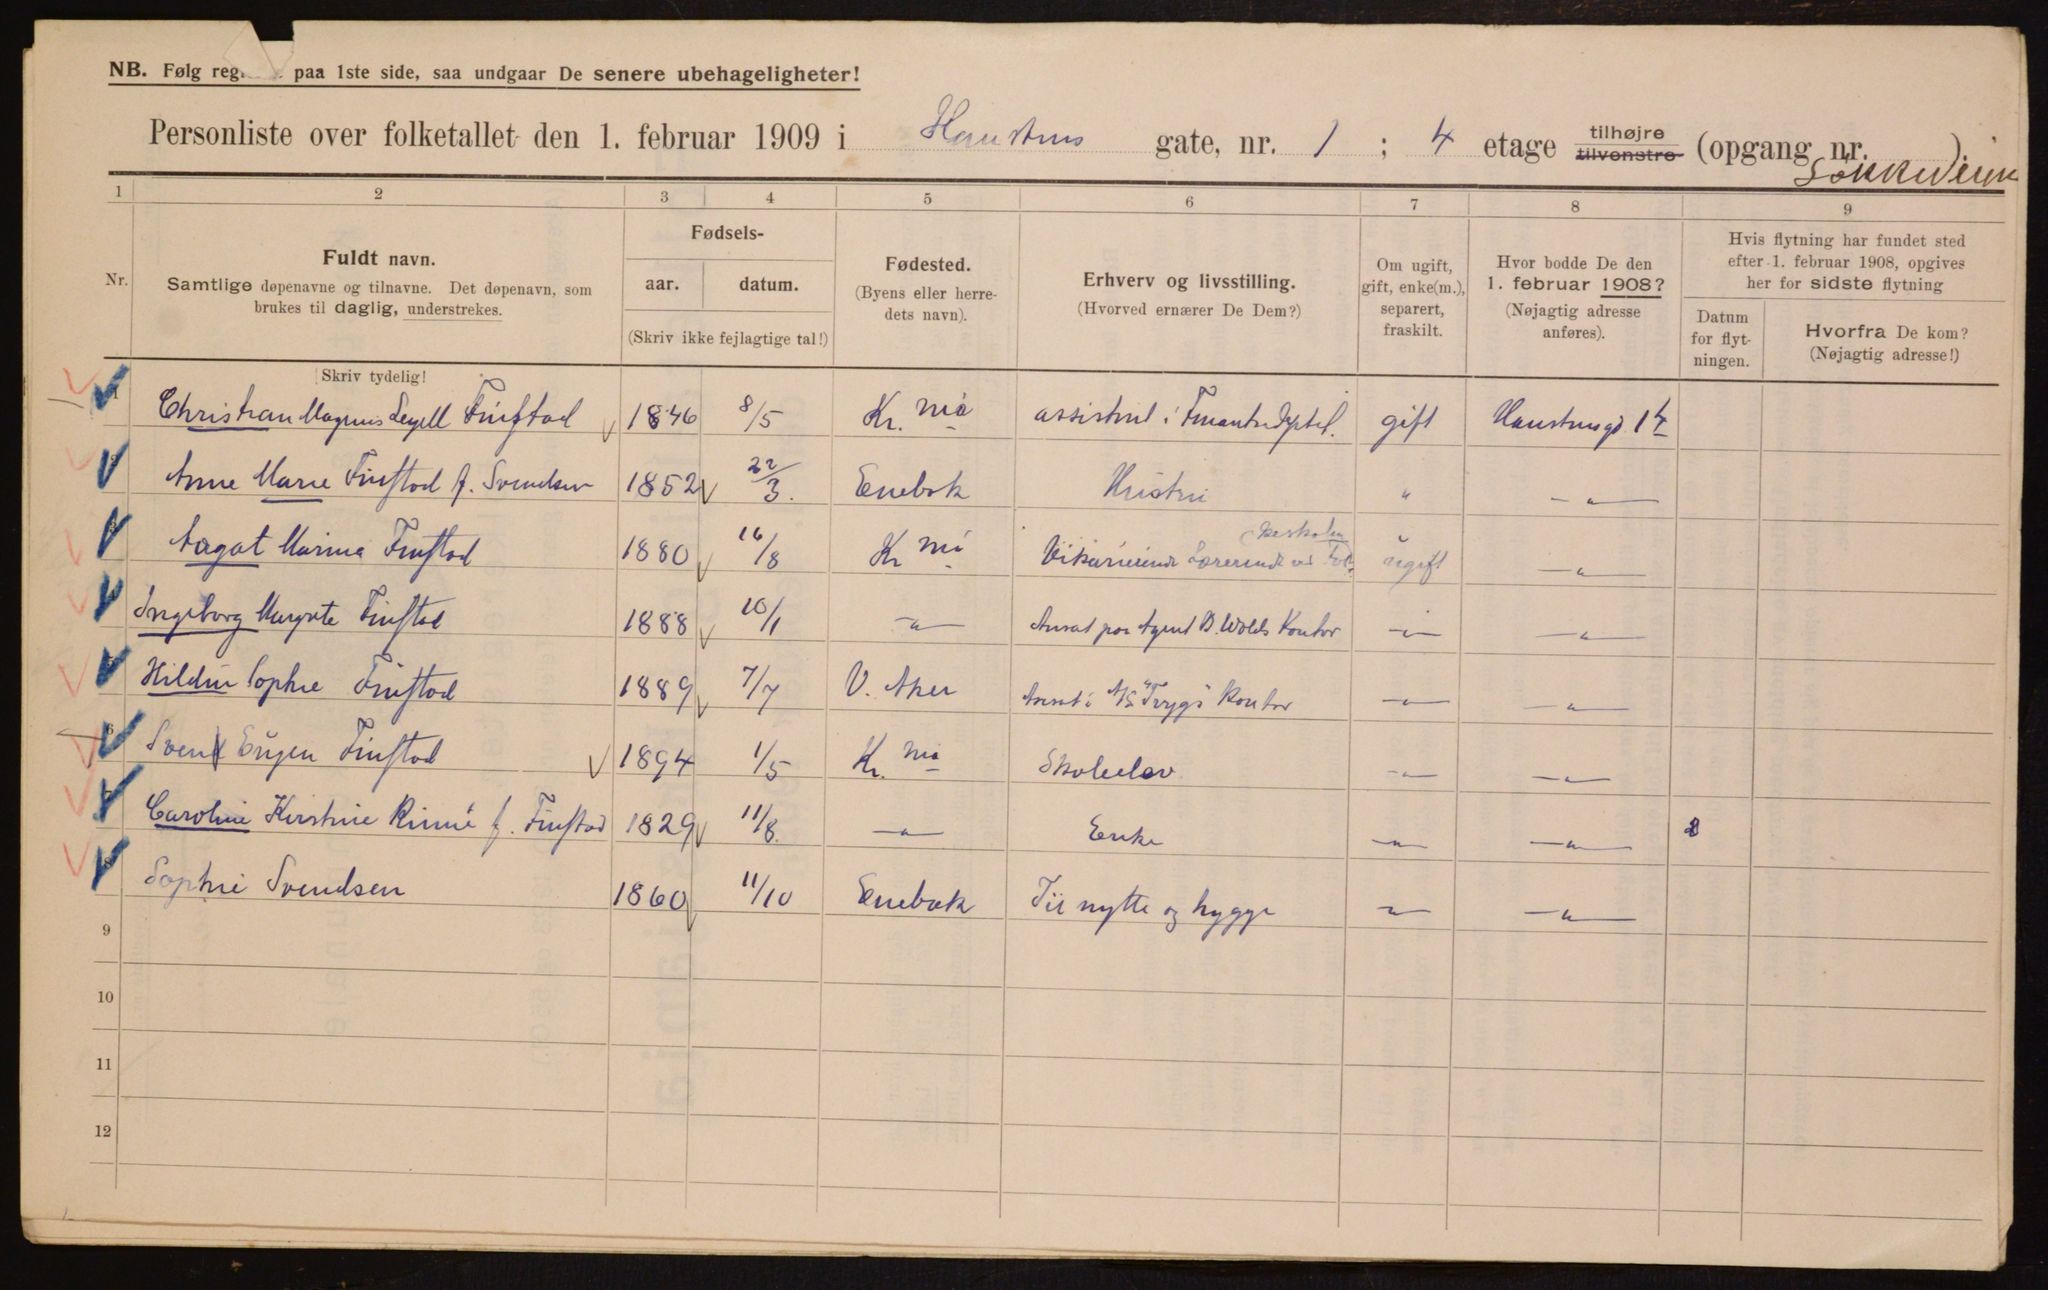 NB. Følg paa 1ste side, saa undgaar De senere ubehageligheter!
Personliste over folketallet den 1. februar 1909 i gate, nr. 1 ; 4 etage tilhøjre tilvenstre (opgang nr. ).
1 2 3 4 5 6 7 8 9
Nr.
Fuldt navn.
Samtlige døpenavne og tilnavne. Det døpenavn, som
brukes til daglig, understrekes.
Skriv tydelig!
Fødsels-
aar. datum.
(Skriv ikke fejlagtige tal!)
Fødested.
(Byens eller herre-
dets navn).
Erhverv og livsstilling.
(Hvorved ernærer De Dem?)
Om ugift,
gift, enke(m.),
separert,
fraskilt.
Hvor bodde De den
1. februar 1908?
(Nøjagtig adresse
anføres).
Hvis flytning har fundet sted
efter 1. februar 1908, opgives
her for sidste flytning
Datum
for flyt-
ningen.
Hvorfra De kom?
(Nøjagtig adresse!)
1 Christian Magnus Finstad 1846 8/5 Kr. nia assistent i gift 14
2 Anne Marie Finstad f. Svendsen 1852 22/3. Enebak Hustru " —"—
3 Aagot Marina Finstad 1880 16/8 Kr nia Vikarierende Lærerinde ved Folkeskolen ugift —"—
4 Ingeborg Margrete Finstad 1888 10/1 —"— Ansat paa Agent B. Wolds Kontor —"— —"—
5 Hildur Sophie Finstad 1889 7/7 V. Aker Ansat i A/S "Tryg's" Kontor —"— —"—
6 Svend Eugen Finstad 1894 1/5 Kr. nia Skoleelev —"— —"—
7 Caroline Kirstine f. Finstad 1829 11/8. —"— Enke —"— —"— 2
8 Sophie Svendsen 1860 11/10 Enebak Til nytte og hygge —"— —"—
9
10
11
12